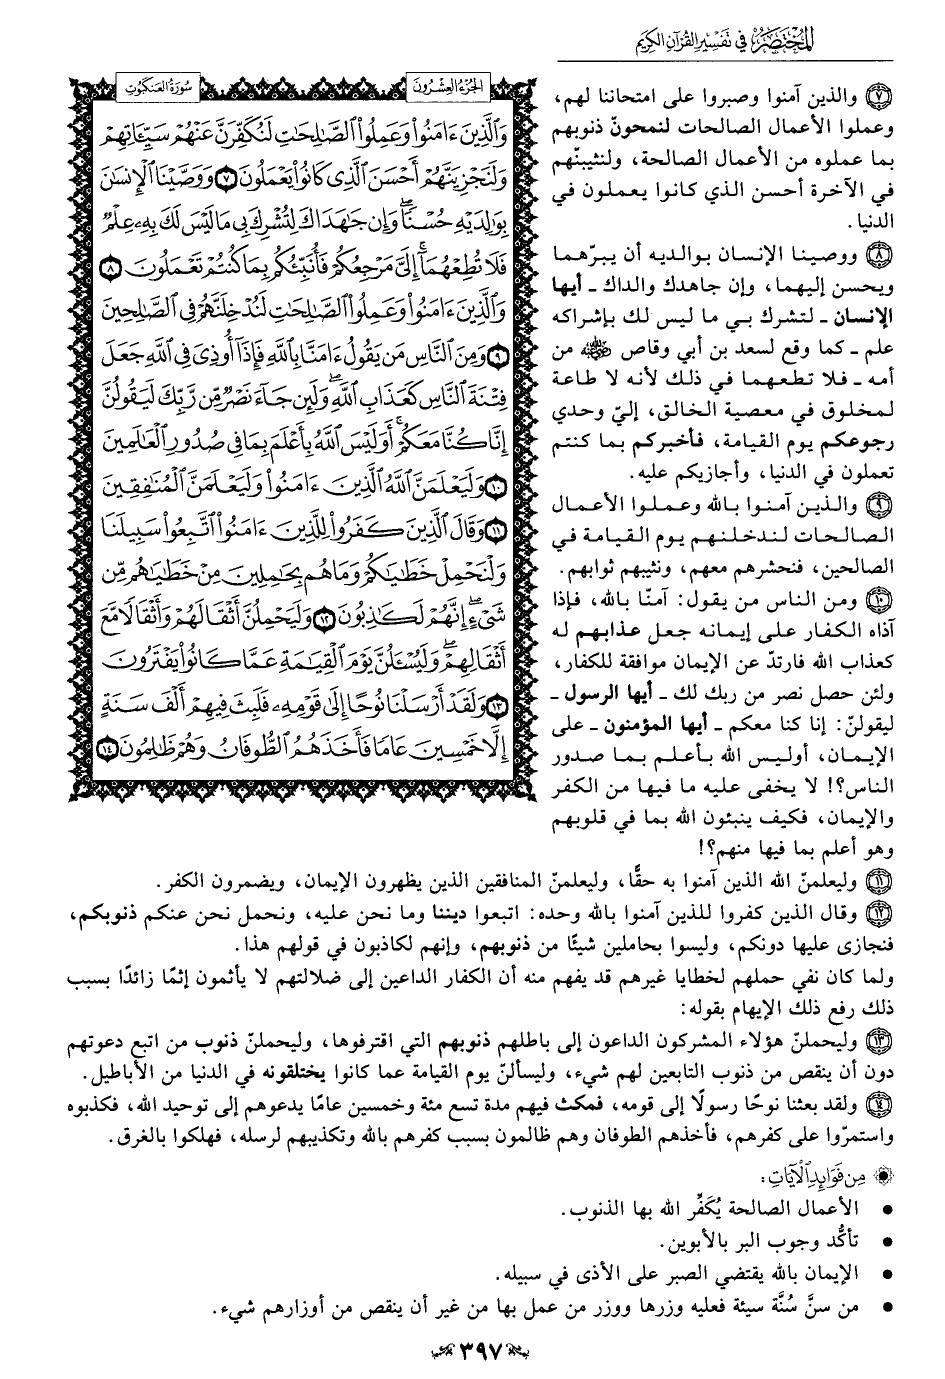 المختصر في تفسير القرآن الكريم
الجزء العشرون
سورة العنكبوت
وَٱلَّذِينَ ءَامَنُواْ وَعَمِلُواْ ٱلصَّٰلِحَٰتِ لَنُكَفِّرَنَّ عَنْهُمْ سَيِّـَٔاتِهِمْ
وَلَنَجْزِيَنَّهُمْ أَحْسَنَ ٱلَّذِى كَانُواْ يَعْمَلُونَ ٧ وَوَصَّيْنَا ٱلْإِنسَٰنَ
بِوَٰلِدَيْهِ حُسْنًا ۖ وَإِن جَٰهَدَاكَ لِتُشْرِكَ بِى مَا لَيْسَ لَكَ بِهِۦ عِلْمٌ
فَلَا تُطِعْهُمَآ ۚ إِلَىَّ مَرْجِعُكُمْ فَأُنَبِّئُكُم بِمَا كُنتُمْ تَعْمَلُونَ ٨
وَٱلَّذِينَ ءَامَنُواْ وَعَمِلُواْ ٱلصَّٰلِحَٰتِ لَنُدْخِلَنَّهُمْ فِى ٱلصَّٰلِحِينَ
٩ وَمِنَ ٱلنَّاسِ مَن يَقُولُ ءَامَنَّا بِٱللَّهِ فَإِذَآ أُوذِىَ فِى ٱللَّهِ جَعَلَ
فِتْنَةَ ٱلنَّاسِ كَعَذَابِ ٱللَّهِ ۖ وَلَئِن جَآءَ نَصْرٌ مِّن رَّبِّكَ لَيَقُولُنَّ
إِنَّا كُنَّا مَعَكُمْ ۚ أَوَلَيْسَ ٱللَّهُ بِأَعْلَمَ بِمَا فِى صُدُورِ ٱلْعَٰلَمِينَ
١٠ وَلَيَعْلَمَنَّ ٱللَّهُ ٱلَّذِينَ ءَامَنُواْ وَلَيَعْلَمَنَّ ٱلْمُنَٰفِقِينَ
١١ وَقَالَ ٱلَّذِينَ كَفَرُواْ لِلَّذِينَ ءَامَنُواْ ٱتَّبِعُواْ سَبِيلَنَا
وَلْنَحْمِلْ خَطَٰيَٰكُمْ وَمَا هُم بِحَٰمِلِينَ مِنْ خَطَٰيَٰهُم مِّن
شَىْءٍ ۖ إِنَّهُمْ لَكَٰذِبُونَ ١٢ وَلَيَحْمِلُنَّ أَثْقَالَهُمْ وَأَثْقَالًا مَّعَ
أَثْقَالِهِمْ ۖ وَلَيُسْـَٔلُنَّ يَوْمَ ٱلْقِيَٰمَةِ عَمَّا كَانُواْ يَفْتَرُونَ
١٣ وَلَقَدْ أَرْسَلْنَا نُوحًا إِلَىٰ قَوْمِهِۦ فَلَبِثَ فِيهِمْ أَلْفَ سَنَةٍ
إِلَّا خَمْسِينَ عَامًا فَأَخَذَهُمُ ٱلطُّوفَانُ وَهُمْ ظَٰلِمُونَ ١٤
٧ والذين آمنوا وصبروا على امتحاننا لهم،
وعملوا الأعمال الصالحات لنمحونّ ذنوبهم
بما عملوه من الأعمال الصالحة، ولنثيبنّهم
في الآخرة أحسن الذي كانوا يعملون في
الدنيا.
٨ ووصينا الإنسان بوالديه أن يبرّهما
ويحسن إليهما، وإن جاهدك والداك ـ أيها
الإنسان ـ لتشرك بي ما ليس لك بإشراكه
علم ـ كما وقع لسعد بن أبي وقاص رضي الله عنه من
أمه ـ فلا تطعهما في ذلك لأنه لا طاعة
لمخلوق في معصية الخالق، إليّ وحدي
رجوعكم يوم القيامة، فأخبركم بما كنتم
تعملون في الدنيا، وأجازيكم عليه.
٩ والذين آمنوا بالله وعملوا الأعمال
الصالحات لندخلنهم يوم القيامة في
الصالحين، فنحشرهم معهم، ونثيبهم ثوابهم.
١٠ ومن الناس من يقول: آمنّا بالله، فإذا
آذاه الكفار على إيمانه جعل عذابهم له
كعذاب الله فارتدّ عن الإيمان موافقة للكفار،
ولئن حصل نصر من ربك لك ـ أيها الرسول ـ
ليقولنّ: إنا كنا معكم ـ أيها المؤمنون ـ على
الإيمان، أوليس الله بأعلم بما صدور
الناس؟! لا يخفى عليه ما فيها من الكفر
والإيمان، فكيف ينبئون الله بما في قلوبهم
وهو أعلم بما فيها منهم؟!
١١ وليعلمنّ الله الذين آمنوا به حقًّا، وليعلمنّ المنافقين الذين يظهرون الإيمان، ويضمرون الكفر.
١٢ وقال الذين كفروا للذين آمنوا بالله وحده: اتبعوا ديننا وما نحن عليه، ونحمل نحن عنكم ذنوبكم،
فنجازى عليها دونكم، وليسوا بحاملين شيئًا من ذنوبهم، وإنهم لكاذبون في قولهم هذا.
ولما كان نفي حملهم لخطايا غيرهم قد يفهم منه أن الكفار الداعين إلى ضلالتهم لا يأثمون إثمًا زائدًا بسبب
ذلك رفع ذلك الإيهام بقوله:
١٣ وليحملنّ هؤلاء المشركون الداعون إلى باطلهم ذنوبهم التي اقترفوها، وليحملنّ ذنوب من اتبع دعوتهم
دون أن ينقص من ذنوب التابعين لهم شيء، وليسألنّ يوم القيامة عما كانوا يختلقونه في الدنيا من الأباطيل.
١٤ ولقد بعثنا نوحًا رسولًا إلى قومه، فمكث فيهم مدة تسع مئة وخمسين عامًا يدعوهم إلى توحيد الله، فكذبوه
واستمرّوا على كفرهم، فأخذهم الطوفان وهم ظالمون بسبب كفرهم بالله وتكذيبهم لرسله، فهلكوا بالغرق.
من فوائد الآيات:
• الأعمال الصالحة يُكَفِّر الله بها الذنوب.
• تأكُّد وجوب البر بالأبوين.
• الإيمان بالله يقتضي الصبر على الأذى في سبيله.
• من سنَّ سُنَّة سيئة فعليه وزرها ووزر من عمل بها من غير أن ينقص من أوزارهم شيء.
٣٩٧